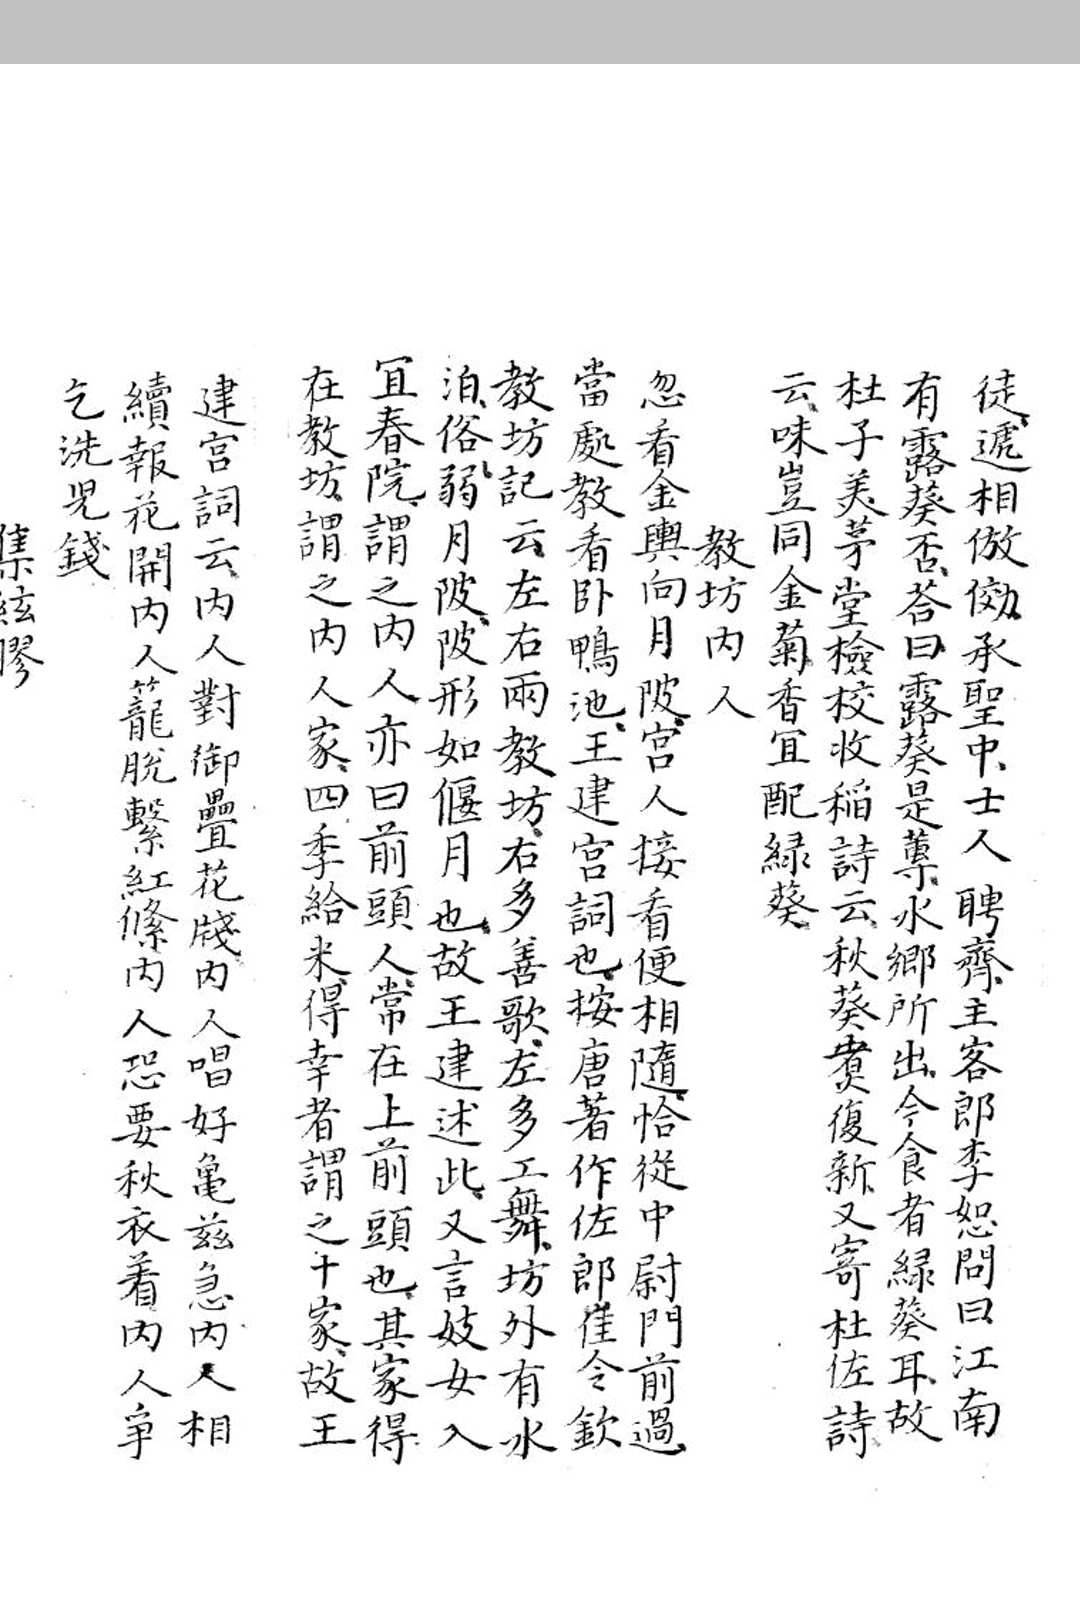 徒遞相倣傚承聖中士人聘齊主客郎李恕問曰江南
有露葵否荅曰露葵是蓴水鄉所出今食者緑葵耳故
杜子美茅堂檢校收稲詩云秋葵煑復新又寄杜佐詩
云味豈同金菊香冝配緑葵
教坊内人
忽看金輿向月陂宫人接看便相隨恰從中尉門前過
當處教看卧鴨池王建宫詞也桉唐著作佐郎崔令欽
教坊記云左右兩教坊右多善歌左多工舞坊外有水
泊俗弱月陂陂形如偃月也故王建述此又言妓女入
冝春院謂之内人亦曰前頭人常在上前頭也其家得
在教坊謂之内人家四季給米得幸者謂之十家故王
建宫詞云内人對御疊花牋内人唱好亀兹急内人相
續報花開内人籠脫繫紅絛内人恐要秋衣着内人争
乞洗児錢
集絃膠